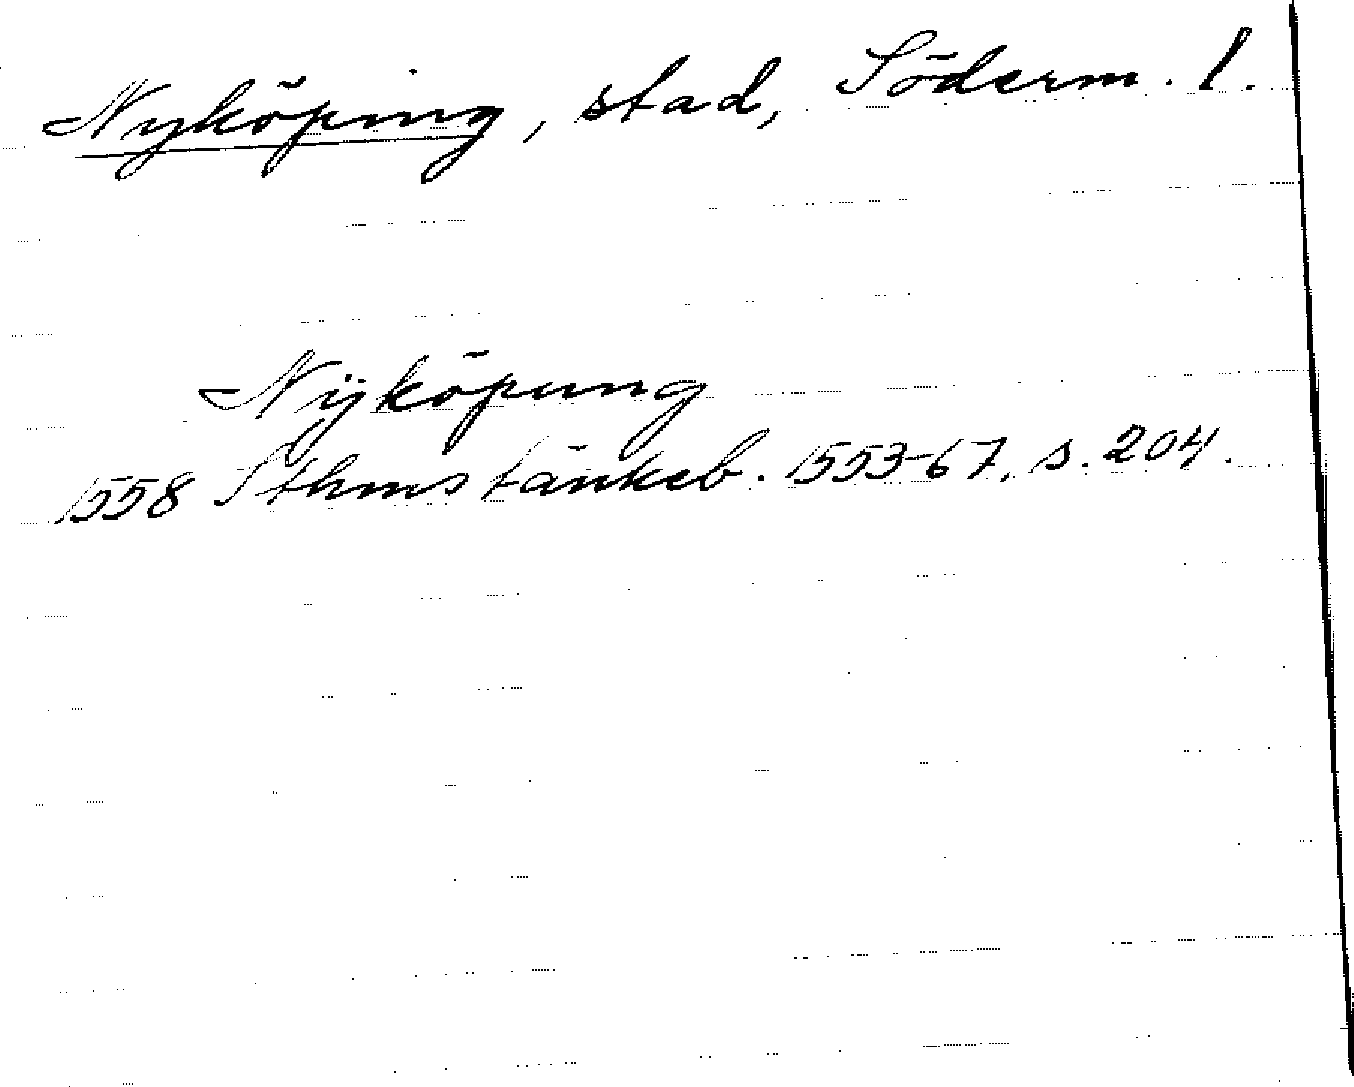 Nyköping, stad, Söderm. l.
Nÿköpung
1558 Sthms tänkeb. 1553-67, s. 204.